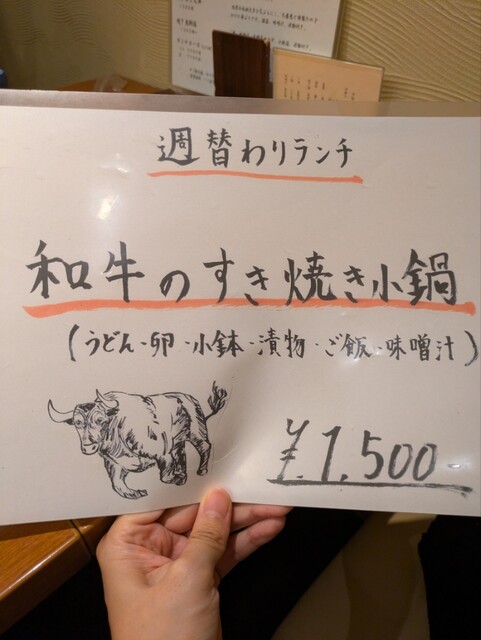 週替わりランチ
和牛のすき焼き小鍋
(うどん・卵・小鉢・漬物・ご飯・味噌汁)
¥1,500